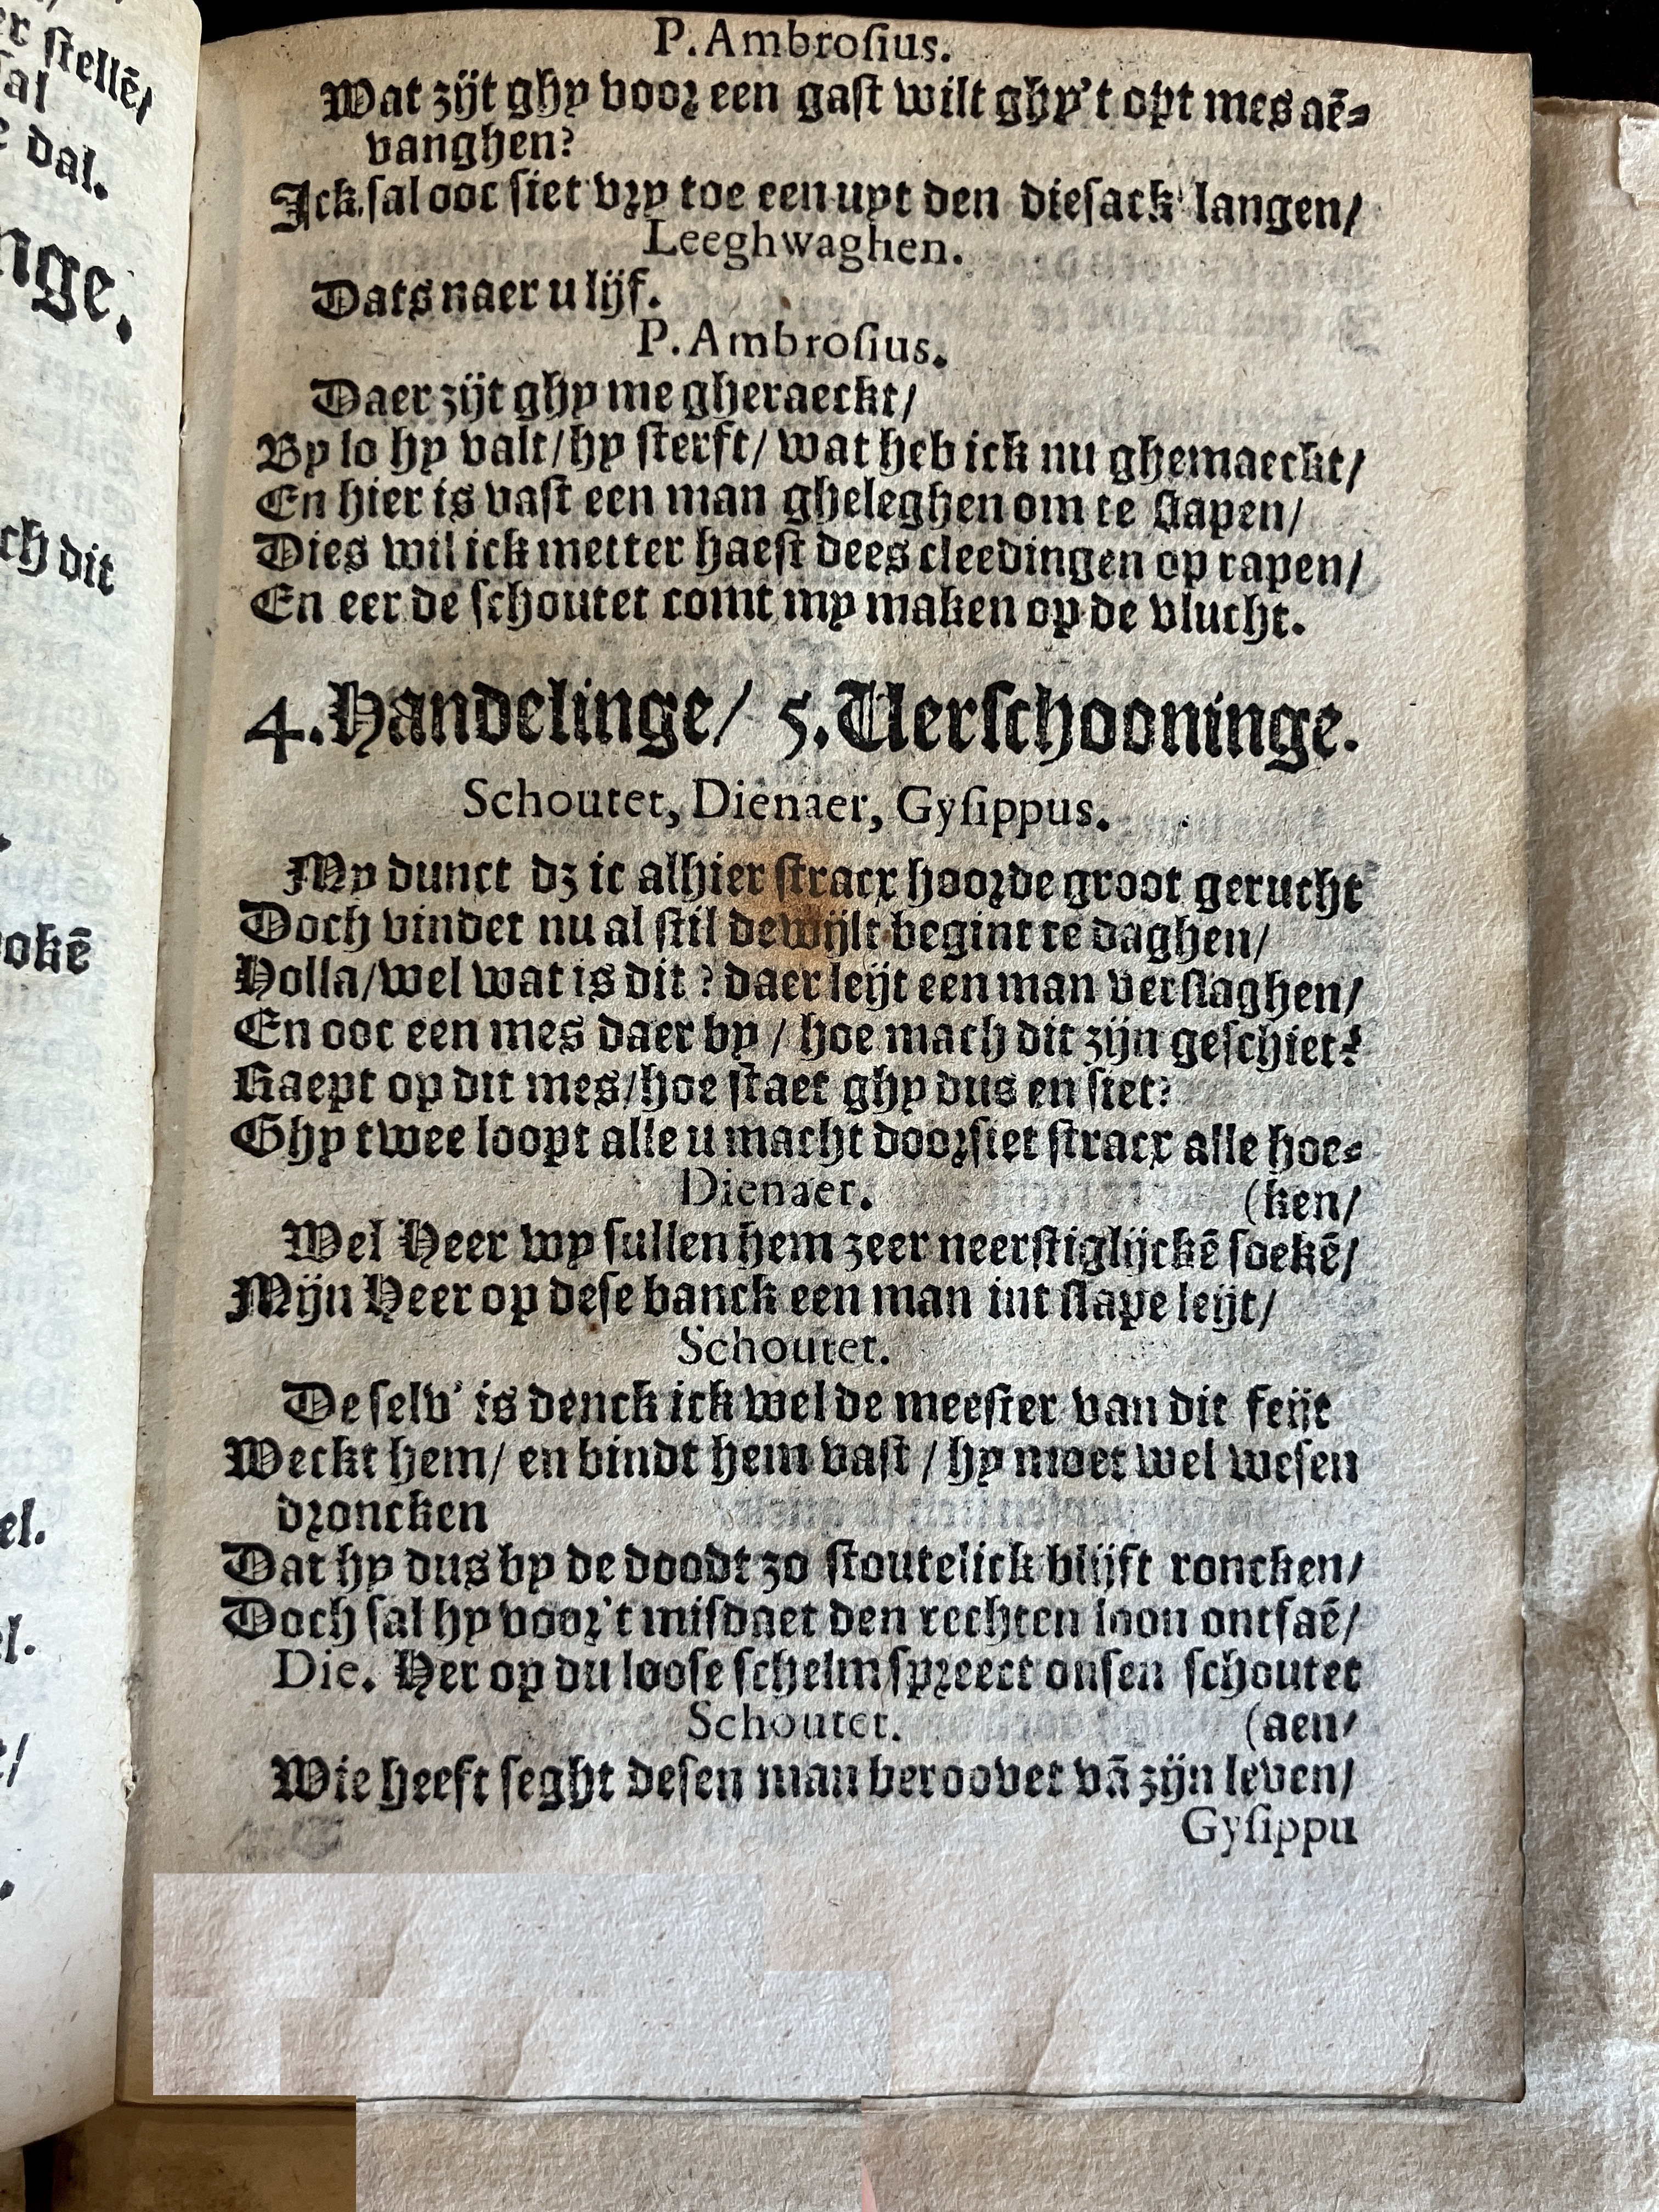 er ſtellē/
ſal
e dal.
nge.
ch dit
ookē
el.
el.
P. Ambroſius.
Wat zijt ghy voor een gaſt wilt ghy't opt mes aē⸗
vanghen?
Ick ſal ooc ſiet vry toe een uyt den dieſack langen/
Leeghwaghen.
Dats naer u lijf.
P. Ambroſius.
Daer zijt ghy me gheraeckt/
By lo hy valt/hy ſterft/ wat heb ick nu ghemaeckt/
En hier is vaſt een man gheleghen om te ſlapen/
Dies wil ick metter haeſt dees cleedingen op rapen/
En eer de ſchoutet comt my maken op de vlucht.
4. Handelinge/ 5. Verſchooninge.
Schoutet, Dienaer, Gyſippus.
My dunct dz ic alhier ſtracx hoorde groot gerucht
Doch vindet nu al ſtil dewijlt begint te daghen/
Holla/wel wat is dit? daer leijt een man verſlaghen/
En ooc een mes daer by / hoe mach dit zijn geſchiet?
Raept op dit mes/hoe ſtaet ghy dus en ſiet?
Ghy twee loopt alle u macht doorſiet ſtracx alle hoe⸗
Dienaer. (ken/
Wel Heer wy ſullen hem zeer neerſtiglijckē ſoekē/
Mijn Heer op deſe banck een man int ſlape leijt/
Schoutet.
De ſelv' is denck ick wel de meeſter van dit feijt
Weckt hem/ en bindt hem vaſt / hy moet wel weſen
droncken
Dat hy dus by de doodt zo ſtoutelick blijft roncken/
Doch ſal hy voor't miſdaet den rechten loon ontfaē/
Die. Her op du looſe ſchelm ſpreect onſen ſchoutet
Schoutet. (aen/
Wie heeft ſeght deſen man beroovet vā zijn leven/
Gyſippu